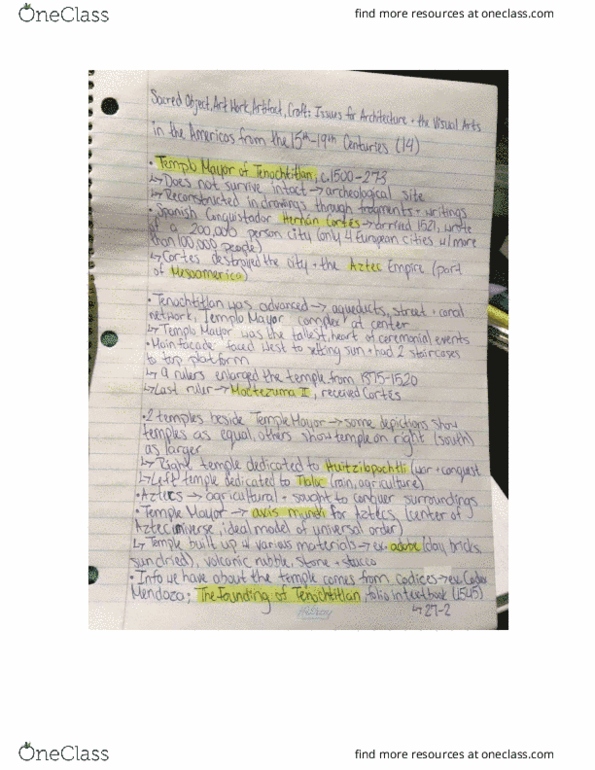 OneClass
find more resources at oneclass.com
Sacred Object, Art Work, Artifact, Craft: Issues for Architecture + the Visual Arts
in the Americas from the 15th-19th Centuries (14)
• Templo Mayor of Tenochtitlan, c.1500-273
↳ Does not survive intact → archeological site
↳ Reconstructed in drawings through fragments + writings
• Spanish Conquistador Hernán Cortés → arrived 1521, wrote
of a 200,000 person city (only 4 European cities w/ more
than 100 000 people)
↳ Cortes destroyed the city + the Aztec Empire (part
of Mesoamerica)
• Tenochtitlan was advanced → aqueducts, street + canal
network, Templo Mayor complex at center
↳ Templo Mayor was the tallest, heart of ceremonial events
• Main facade faced West to setting sun + had 2 staircases
to top platform
↳ 9 rulers enlarged the temple from 1375-1520
↳ Last ruler → Moctezuma II, received Cortés
• 2 temples beside Temple Mayor → some depictions show
temples as equal, others show temple on right (south)
as larger
↳ Right temple dedicated to Huitzilopochtli (war + conquest
↳ Left temple dedicated to Tlaloc (rain, agriculture)
• Aztecs → agricultural + sought to conquer surroundings
• Templo Mayor → axis mundi for Aztecs, (center of
Aztec universe, ideal model of universal order)
↳ Temple built up w various materials → ex. adobe (clay bricks,
sun dried), volcanic rubble, stone + stucco
• Info we have about the temple comes from codices → ex. Codex
Mendoza; The Founding of Tenochtitlan, folio in textbook (1545)
↳ 27-2
find more resources at oneclass.com
OneClass